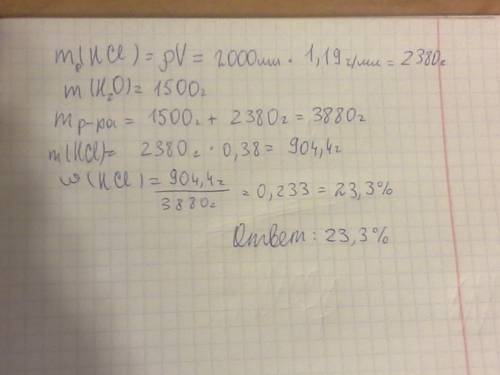 mр(HCl) = ρV = 2000мл · 1,19г/мл = 2380г
m(H₂O) = 1500г
mр-ра = 1500г + 2380г = 3880г
m(HCl) = 2380г · 0,38 = 904,4г
ω(HCl) = 904,4г / 3880г = 0,233 = 23,3%
Ответ: 23,3%